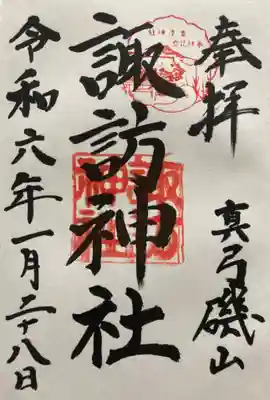 奉拝
真弓磯山
諏訪神社
令和六年一月二十八日